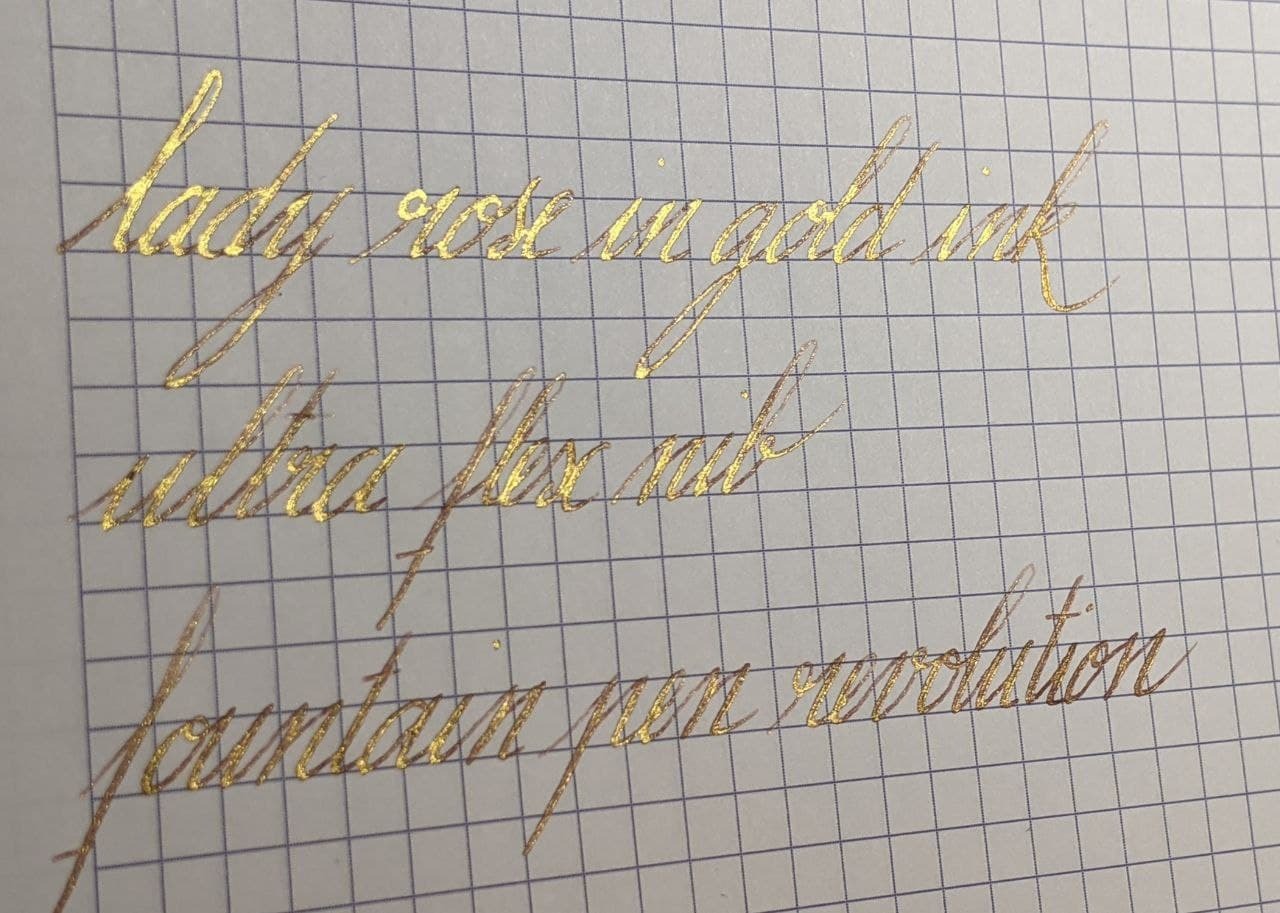 lady rose in gold ink
ultra flex nib
fountain pen revolution